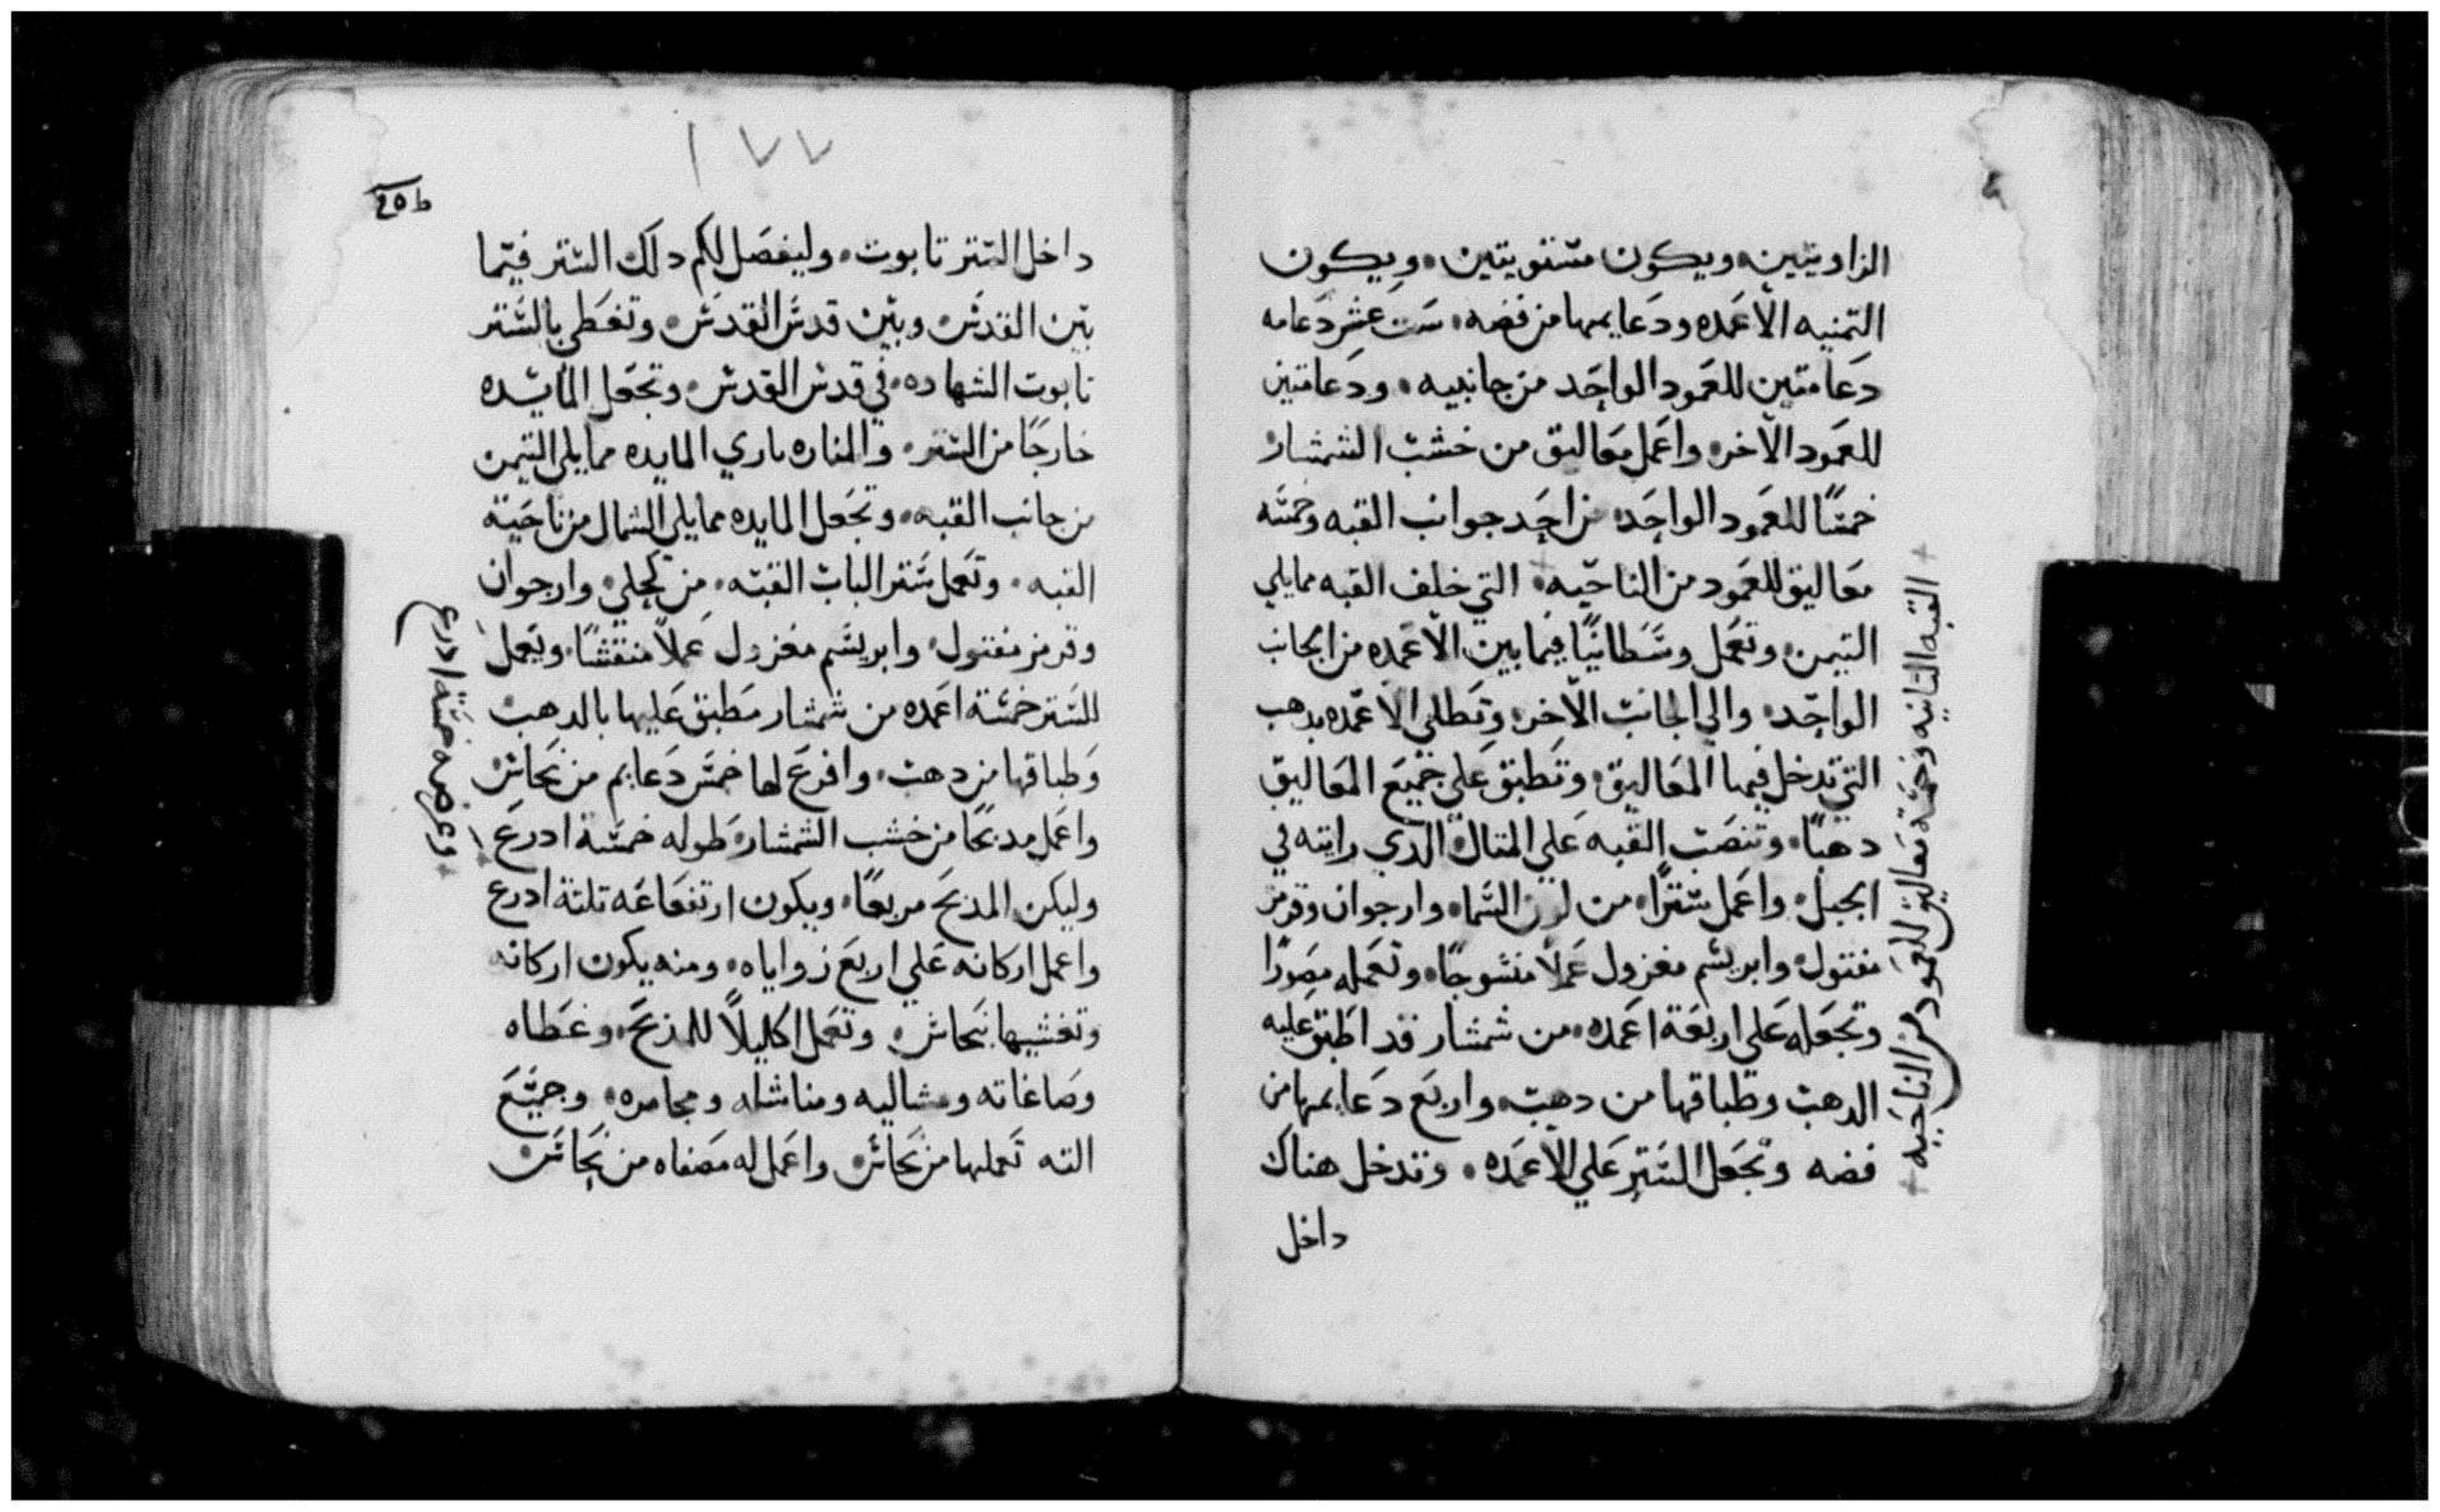 الزاويتين ويكون مستويتين ويكون
التمنيه الاعمده ودعايمها من فضه ست عشر دعامه
دعامتين للعمود الواحد من جانبيه ودعامتين
للعمود الاخر واعمل معاليق من خشب الشمشار
خمسًا للعمود الواحد من احد جوانب القبه وخمسه
معاليق للعمود من الناحيه التي خلف القبه مما يلي
التيمن وتعمل وسطانيًا فيما بين الاعمده من الجانب
الواحد والي الجانب الاخر وتطلي الاعمده بدهب
التي تدخل فيها المعاليق وتطبق علي جميع المعاليق
دهبًا وتنصب القبه علي المتال الدي رايته في
الجبل واعمل سترًا من لون السما وارجوان وقرمز
مفتول وابريسم مغزول عملًا منسوجًا وتعمله مصورًا
وتجعله علي اربعة اعمده من شمشار قد اطبق عليه
الدهب وطباقها من دهب واربع دعايمها من
فضه وتجعل الستر علي الاعمده وتدخل هناك
داخل
القبه التانيه وخمسة معاليق للعمود من الناحيه
١٧٧
داخل الستر تابوت وليفصل لكم دلك الستر فيما
بين القدس وبين قدس القدس وتغطي بالستر
تابوت الشهاده في قدس القدس وتجعل المايده
خارجًا من الستر والمناره بازي المايده مما يلي التيمن
من جانب القبه وتجعل المايده مما يلي الشمال من ناحية
القبه وتعمل ستر الباب القبه من كحلي وارجوان
وقرمز مفتول وابريسم مغزول عملًا منقشًا ويعمل
للستر خمسة اعمده من شمشار مطبق عليها بالدهب
وطباقها من دهب وافرغ لها خمس دعايم من نحاس
واعمل مدبحًا من خشب الشمشار طوله خمسة ادرع
وعرضه خمسة ادرع
وليكن المدبح مربعًا ويكون ارتفاعه تلتة ادرع
واعمل اركانه علي اربع زواياه ومنه يكون اركانه
وتغشيها نحاس وتعمل اكليلًا للمدبح وغطاه
وصاغاته ومشاليه ومناشله ومجامره وجميع
الته تعملها من نحاس واعمل له مصفاه من نحاس